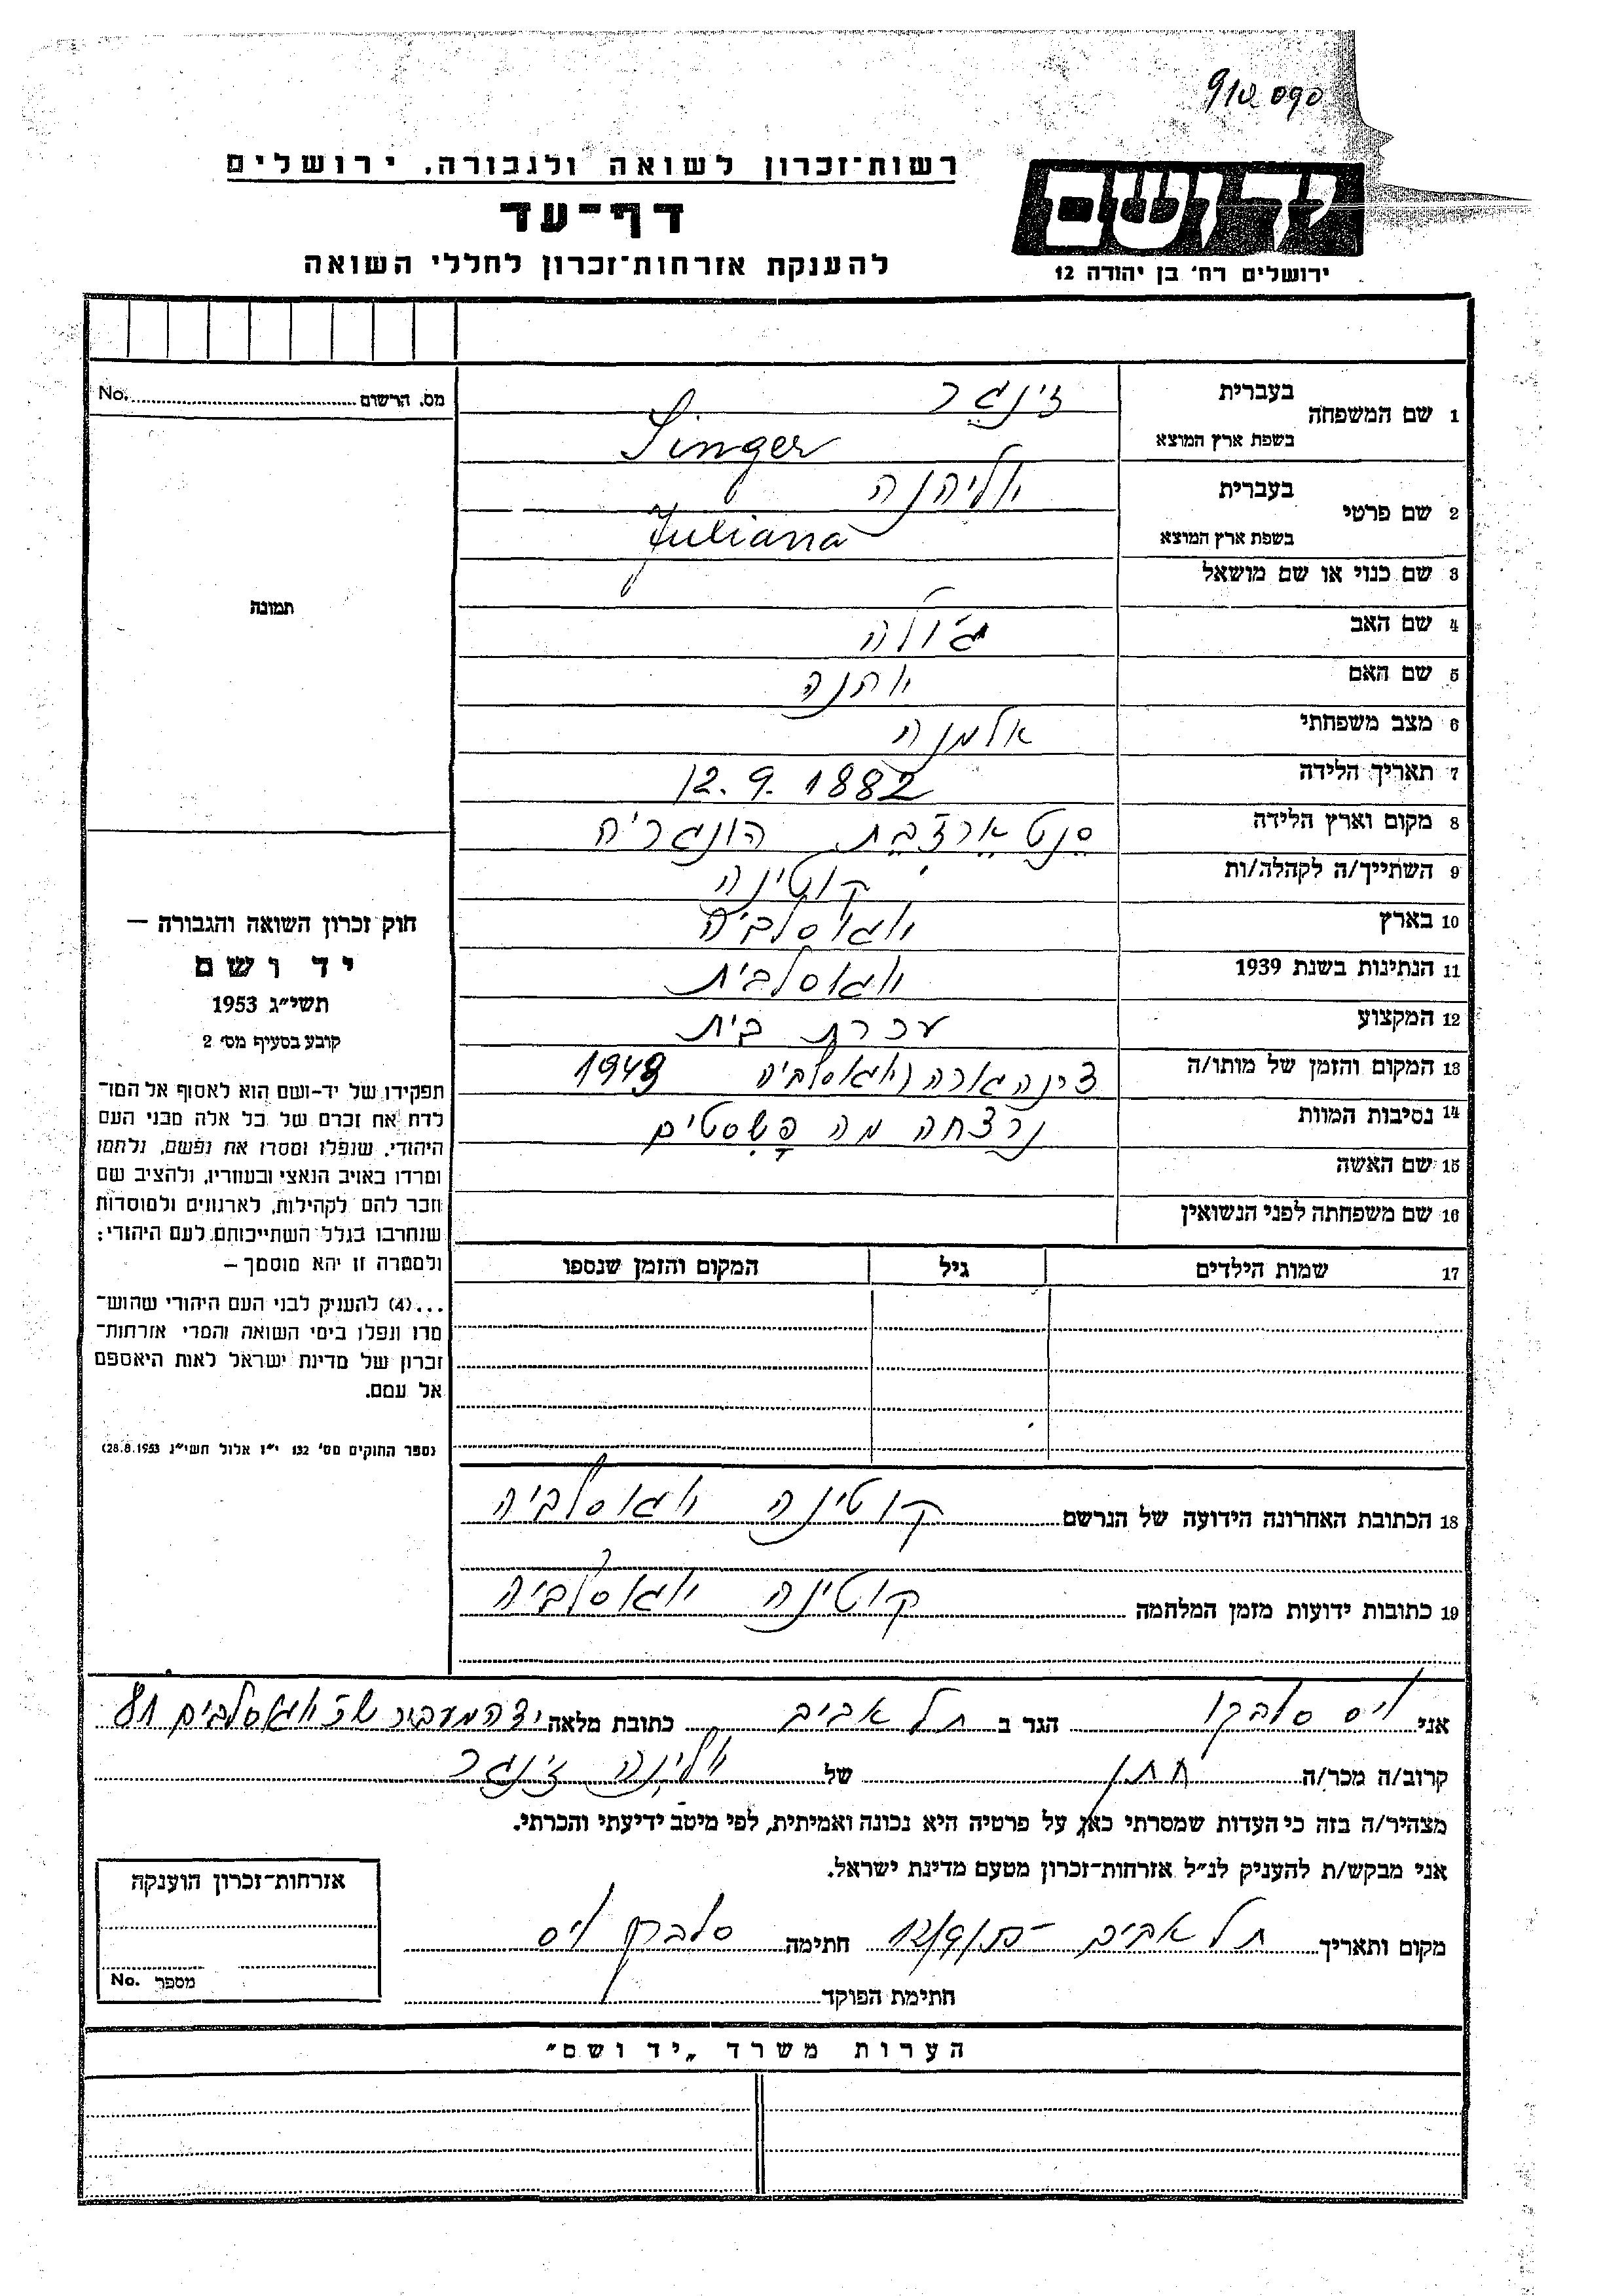 910 090
רשות־זכרון לשואה ולגבורה, ירושלים
דף־עד
להענקת אזרחות־זכרון לחללי השואה
יד ושם
ירושלים רח' בן יהודה 12
מס. הרשום No.
תמונה
1 שם המשפחה בעברית זינגר
בשפת ארץ המוצא Singer
2 שם פרטי בעברית יוליהנה
בשפת ארץ המוצא Juliana
3 שם כנוי או שם מושאל
4 שם האב
5 שם האם
6 מצב משפחתי אלמנה
7 תאריך הלידה 12.9.1882
8 מקום וארץ הלידה הונגריה
9 השתייך/ה לקהלה/ות קוטינה
10 בארץ יוגוסלביה
11 הנתינות בשנת 1939 יוגוסלבית
12 המקצוע עכרת בית
13 המקום והזמן של מותו/ה
14 נסיבות המוות נרצחה מה פשסטים
15 שם האשה
16 שם משפחתה לפני הנשואין
17 שמות הילדים גיל המקום והזמן שנספו
חוק זכרון השואה והגבורה –
יד ושם
תשי"ג 1953
קובע בסעיף מס' 2
תפקידו של יד-ושם הוא לאסוף אל המו־
לדת את זכרם של כל אלה מבני העם
היהודי, שנפלו ומסרו את נפשם, נלחמו
ומרדו באויב הנאצי ובעוזריו, ולהציב שם
וזכר להם לקהילות, לארגונים ולמוסדות
שנחרבו בגלל השתייכותם לעם היהודי;
ולמטרה זו יהא מוסמך –
...(4) להעניק לבני העם היהודי שהוש־
מדו ונפלו בימי השואה והמרי אזרחות־
זכרון של מדינת ישראל לאות היאספם
אל עמם.
(ספר החוקים מס' 132 י"ז אלול תשי"ג 28.8.1953)
18 הכתובת האחרונה הידועה של הנרשם קוטינה יוגוסלביה
19 כתובות ידועות מזמן המלחמה קוטינה יוגוסלביה
אני ויס סלבקו הגר ב תל אביב כתובת מלאה
קרוב/ה מכר/ה חתן של יולינה זינגר
מצהיר/ה בזה כי העדות שמסרתי כאן על פרטיה היא נכונה ואמיתית, לפי מיטב ידיעתי והכרתי.
אני מבקש/ת להעניק לנ"ל אזרחות-זכרון מטעם מדינת ישראל.
מקום ותאריך תל אביב חתימה סלבקו ויס
חתימת הפוקד
אזרחות-זכרון הוענקה
מספר No.
הערות משרד „יד ושם"